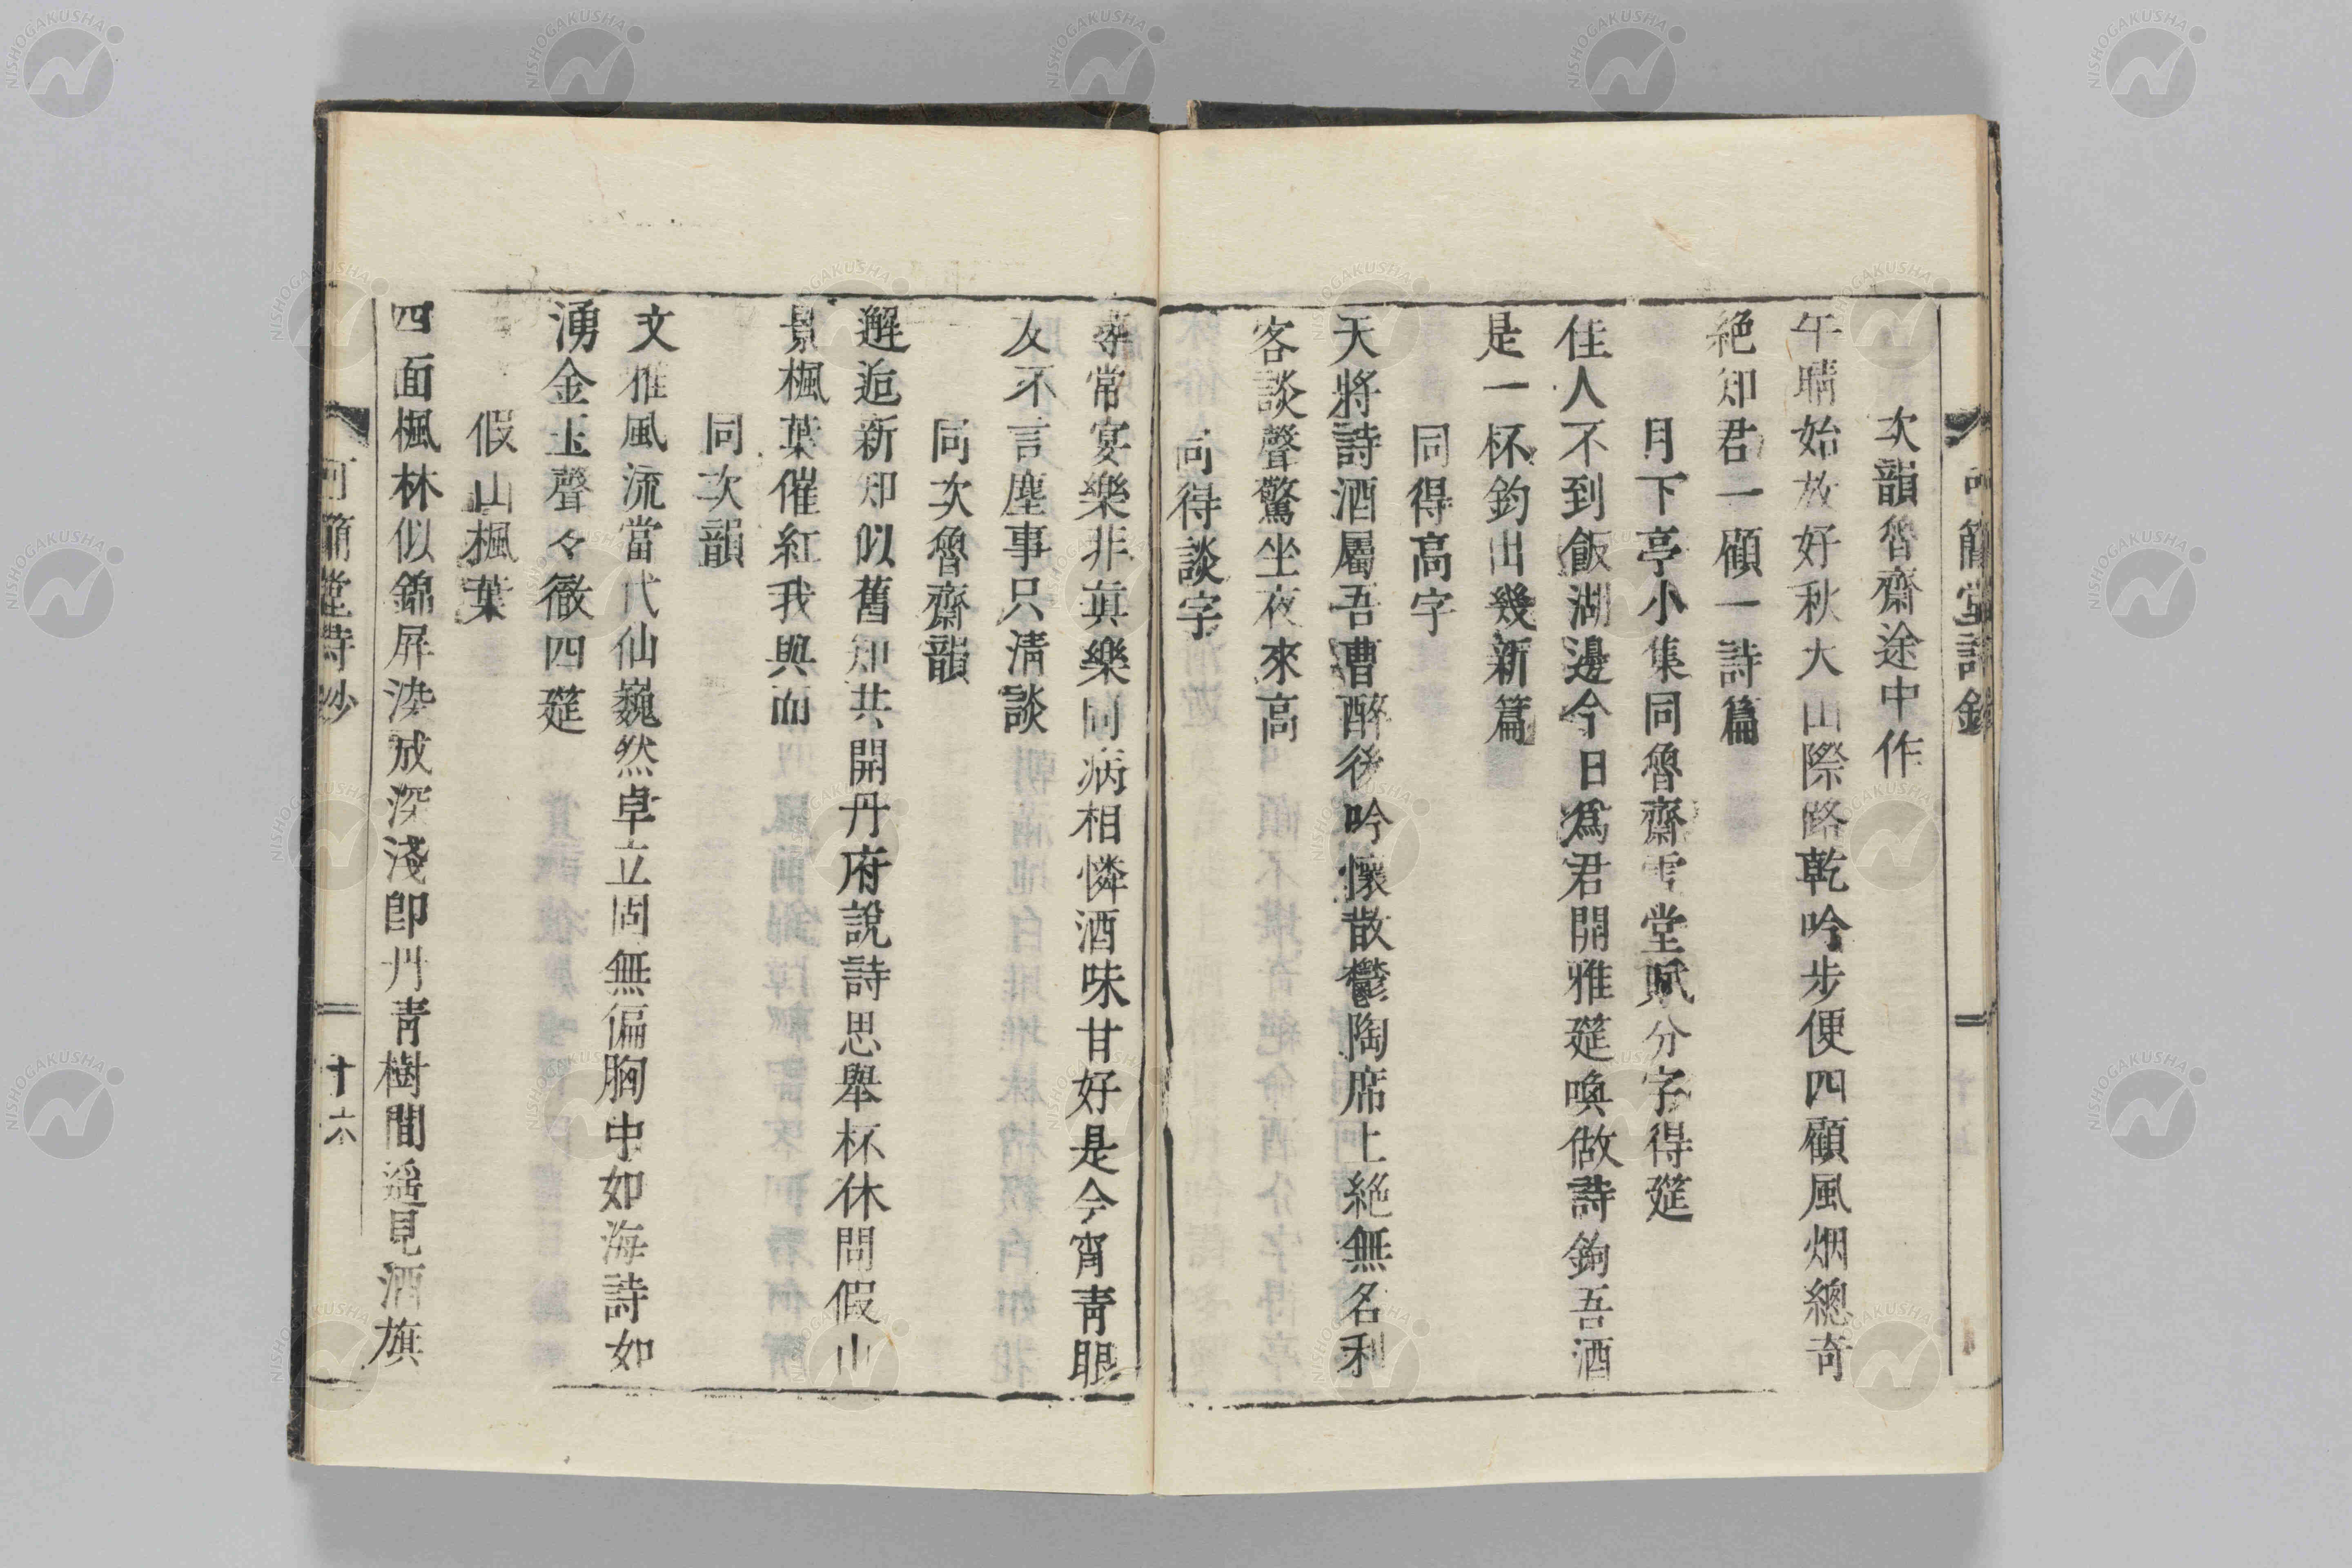 次韻魯齋途中作
午晴始放好秋大山際路乾吟步便四顧風烟總奇
絕知君一顧一詩篇
月下亭小集同魯齋雪堂賦分字得筵
佳人不到飯湖邊今日爲君開雅筵喚做詩鉤吾酒
是一杯鈎出幾新篇
同得高字
天將詩酒屬吾曹醉後吟懷散鬱陶席上絕無名利
客談聲驚坐夜來高
同得談字
尋常宴樂非眞樂同病相憐酒味甘好是今宵靑眼
友不言塵事只清談
同次魯齋韻
邂逅新知似舊知共開丹府說詩思舉杯休問假山
景楓葉催紅我與而
同次韻
文雅風流當代仙巍然卓立固無偏胸中如海詩如
湧金玉聲々徹四筵
假山楓葉
四面楓林似錦屏染成深淺卽丹靑樹間遙見酒旗
可簡堂詩鈔
十六
NISHOGAKUSHA